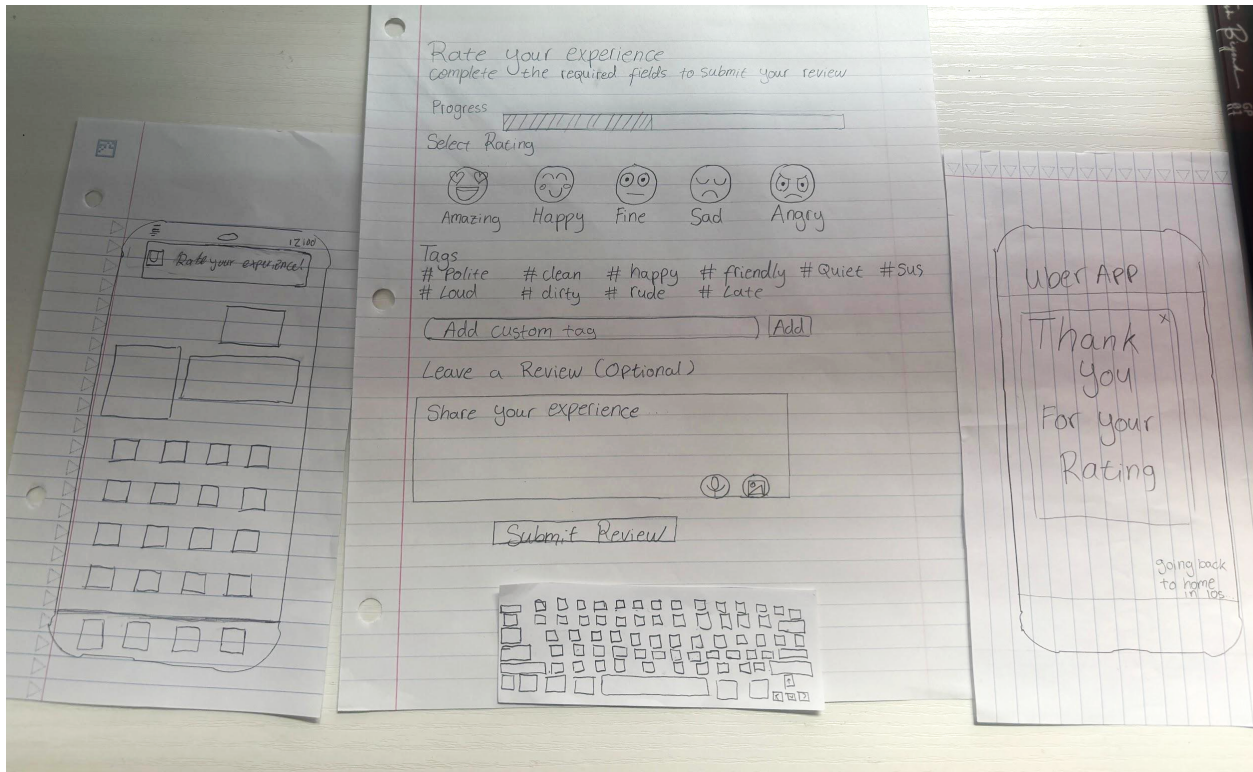 12:00
Rate your experience!
Rate your experience
complete the required fields to submit your review
Progress
Select Rating
Amazing Happy Fine Sad Angry
Tags
# Polite # clean # happy # friendly # Quiet # Sus
# Loud # dirty # rude # Late
Add custom tag Add
Leave a Review (Optional)
Share your experience
Submit Review
Uber App
x
Thank
you
For your
Rating
going back
to home
in ios